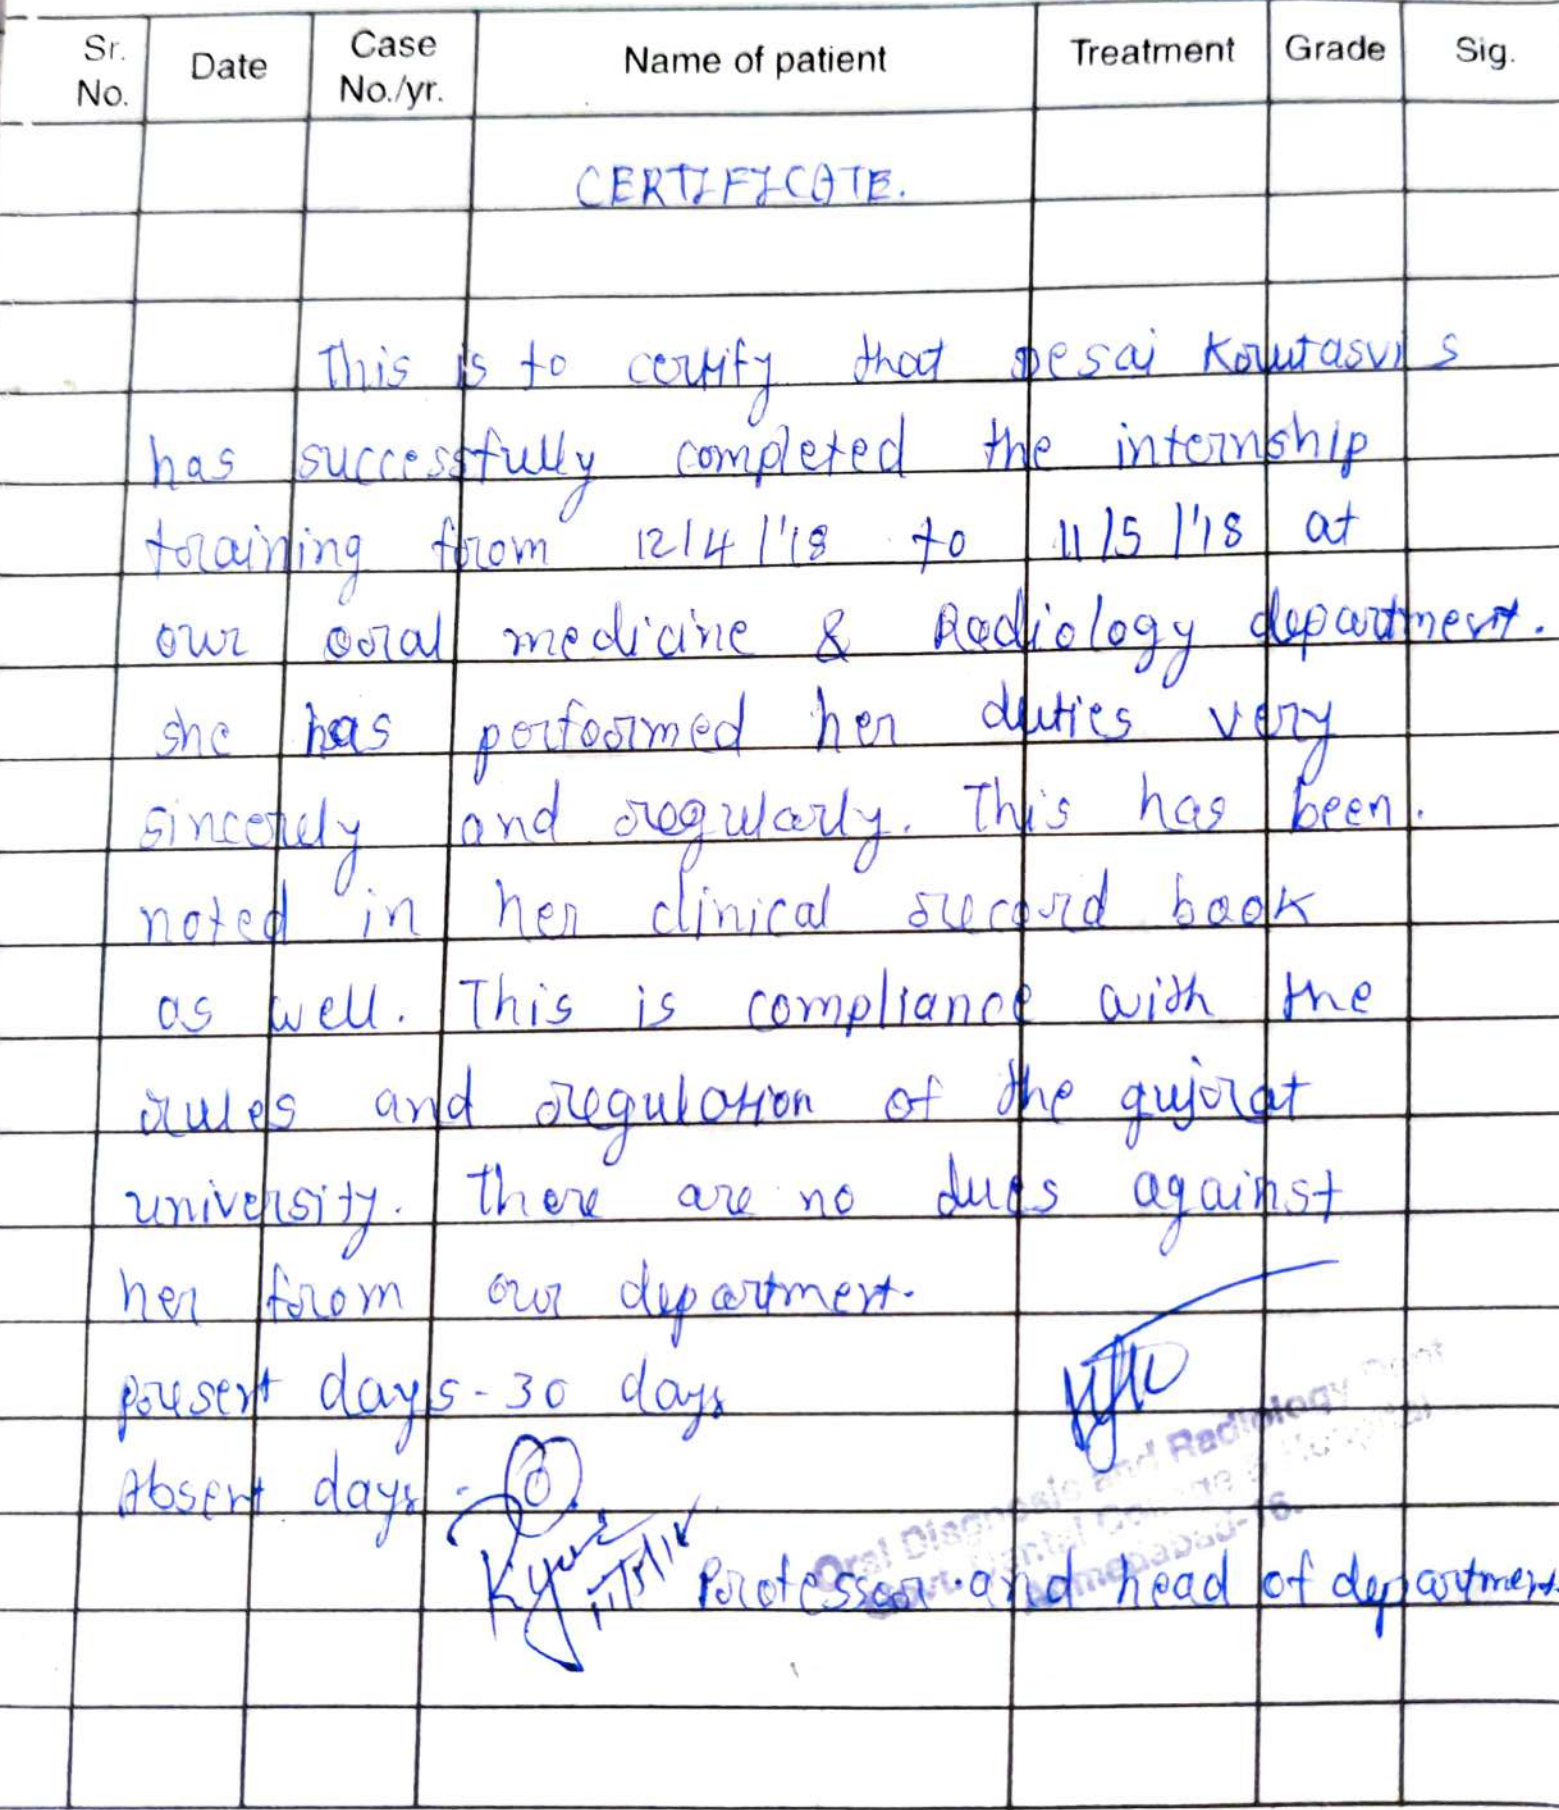 Sr. No. Date Case No./yr. Name of patient Treatment Grade Sig.
CERTIFICATE.
This is to certify that Desai
has successfully completed the internship
training from 12/4/'18 to 11/5/'18 at
our oral medicine & Radiology department.
she has performed her duties very
sincerely and regularly. This has been.
noted in her clinical record book
as well. This is compliance with the
rules and regulation of the gujrat
university. There are no dues against
her from our department.
present days - 30 days
Absent days - 0
Oral Diagnosis and Radiology
Professor and head of department